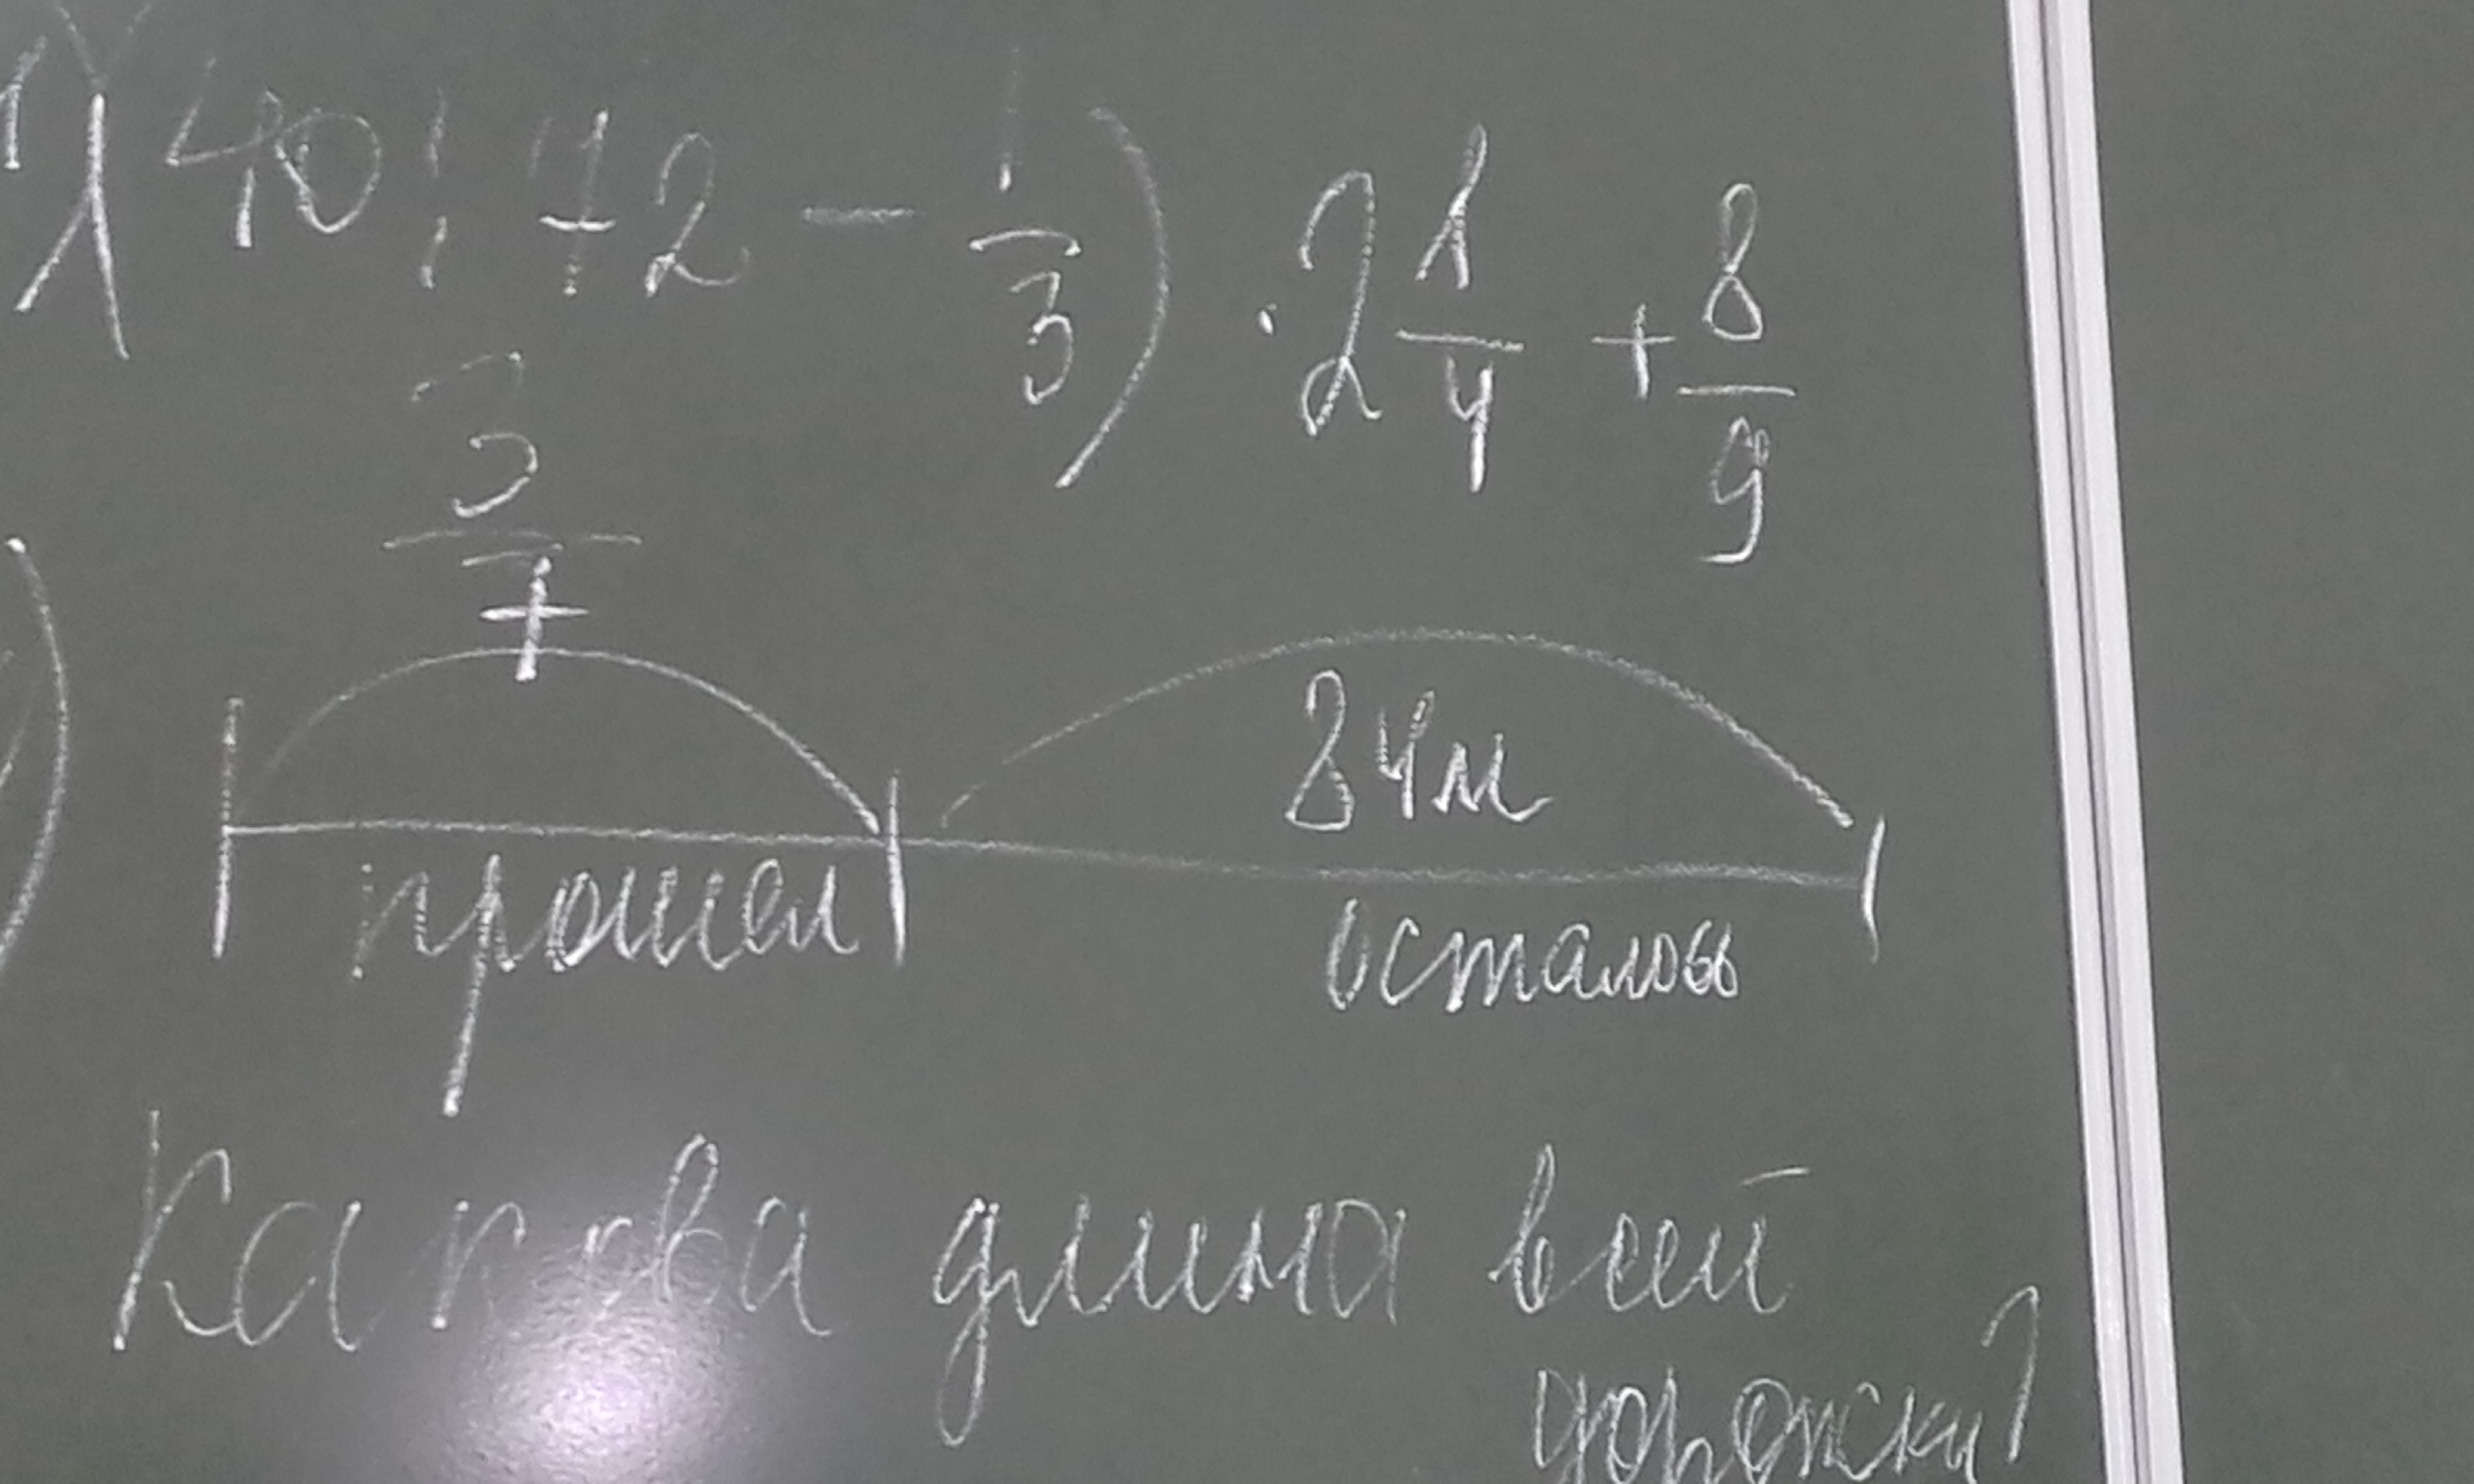 1) (40 : 72 - 1/3) · 2 1/4 + 8/9
3/7
84м
прошел
осталось
Какова длина всей
дорожки?